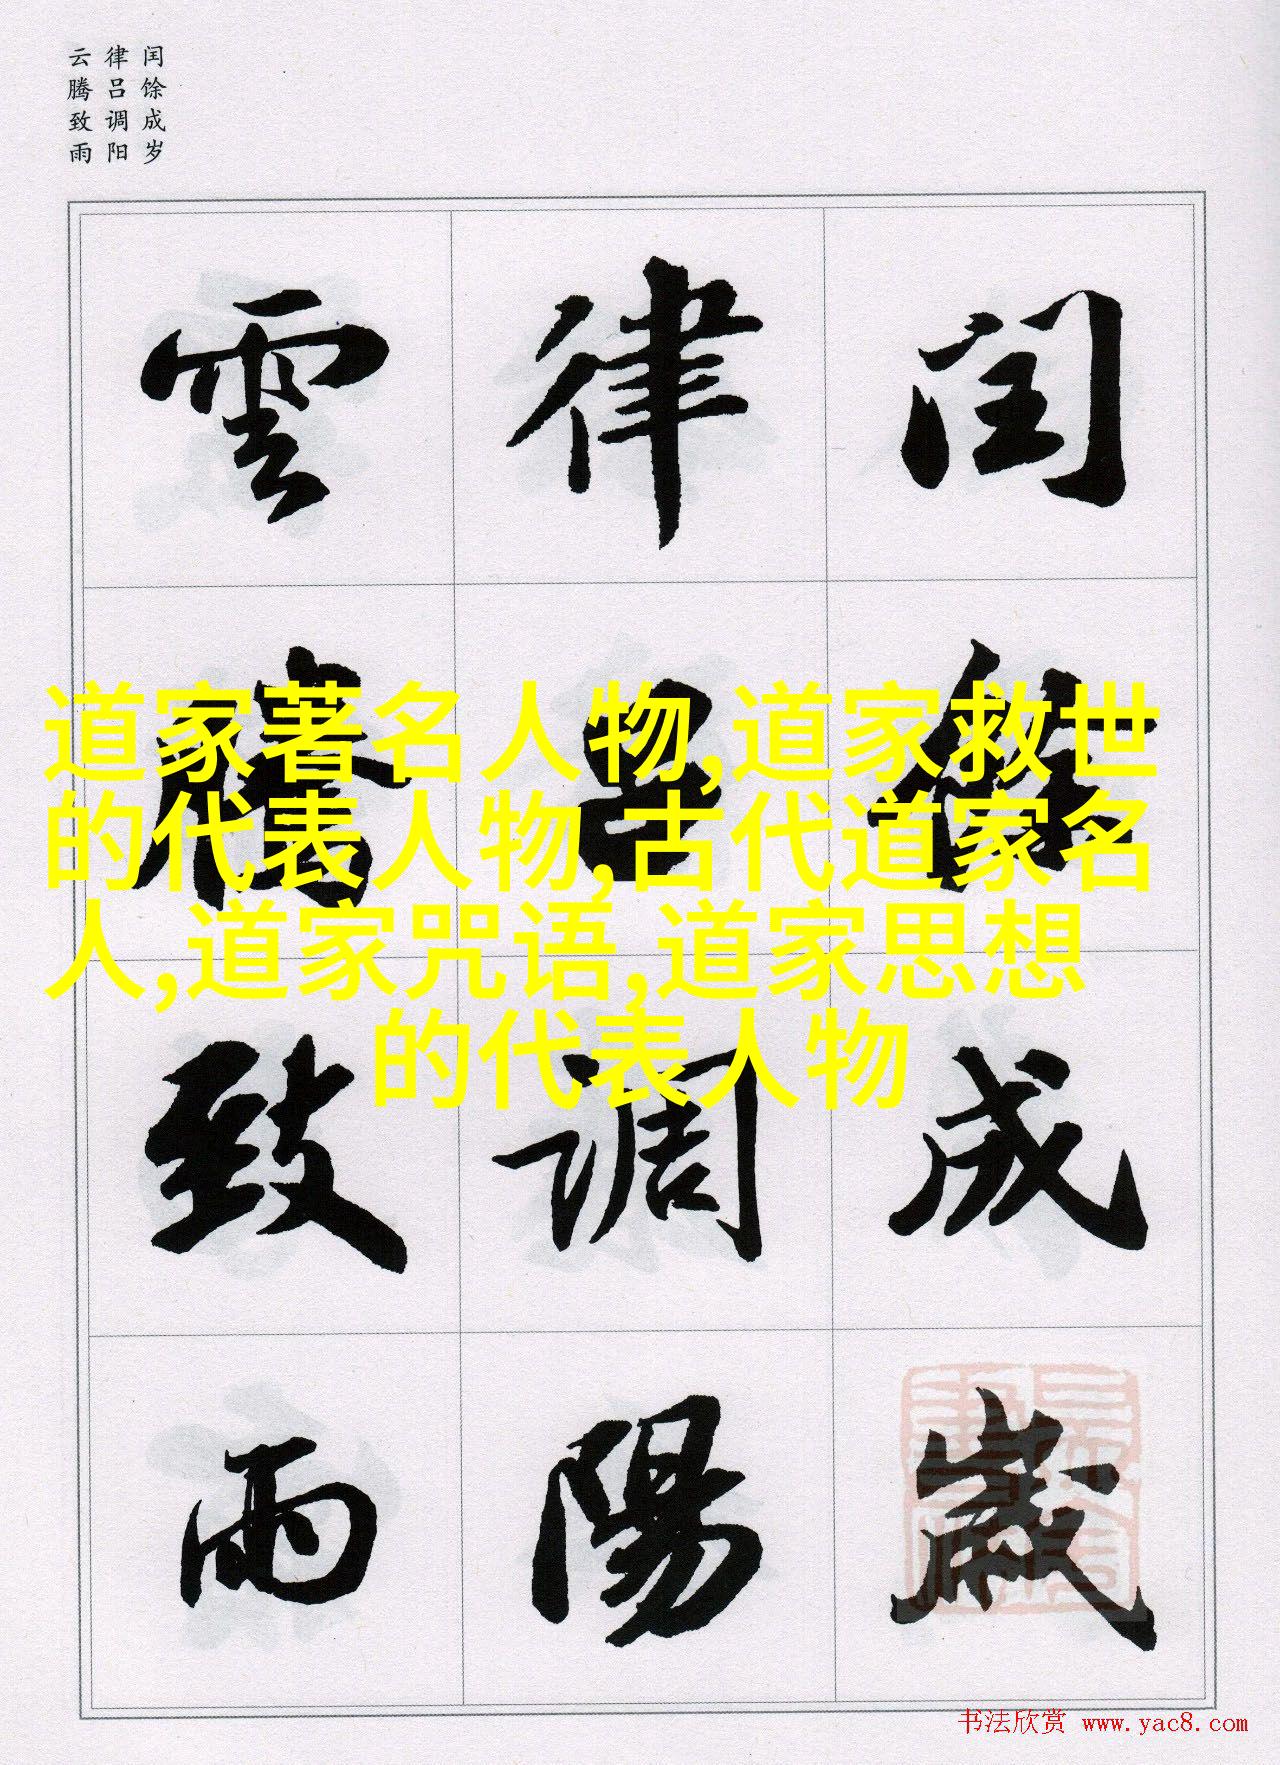 闰馀成岁
律吕调阳
云腾致雨
闰馀成歲
律吕调陽
雲騰致雨
道家著名人物,道家救世
的代表人物,古代道家名
人,道家咒语,道家思想
的代表人物
书法欣赏 www.yac8.com